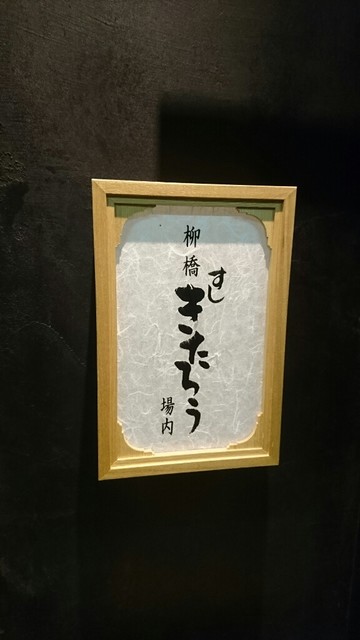 柳橋
すし
きたろう
場内